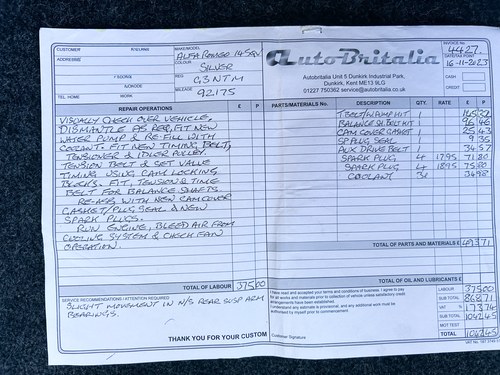 CUSTOMER
ADDRESS
TEL. HOME
WORK
MAKE/MODEL ALFA ROMEO 145QV
COLOUR SILVER
REG G3NTM
MILEAGE 92175
AutoBritalia
Autobritalia Unit 5 Dunkirk Industrial Park,
Dunkirk, Kent ME13 9LG
01227 750362 service@autobritalia.co.uk
INVOICE No. 4427
DATE/TAX POINT
16-11-2023
CASH
CREDIT
REPAIR OPERATIONS £ P
VISUALLY CHECK OVER VEHICLE.
DISMANTLE AS REQ, FIT NEW
WATER PUMP & RE-FILL WITH
COOLANT. FIT NEW TIMING BELT,
TENSIONER & IDLER PULLEY
TENSION BELT & SET VALVE
TIMING USING CAM LOCKING
BLOCKS. FIT, TENSION & TIME
BELT FOR BALANCE SHAFTS
RE-ASS WITH NEW CAM COVER
GASKET/PLUG SEAL & NEW
SPARK PLUGS.
RUN ENGINE, BLEED AIR FROM
COOLING SYSTEM & CHECK FAN
OPERATION.
TOTAL OF LABOUR 375.00
PARTS/MATERIALS No. DESCRIPTION QTY. RATE £ P
T BELT/W/PUMP KIT 1
BALANCE SH. BELT KIT 1 96.96
CAM COVER GASKET 1 25.43
SP PLUG SEAL 9.95
AUX DRIVE BELT 1 34.57
SPARK PLUG 4 17.95 71.80
SPARK PLUG 4 18.95 75.80
COOLANT 34.98
TOTAL OF PARTS AND MATERIALS £ 493.71
TOTAL OF OIL AND LUBRICANTS £
SERVICE RECOMMENDATIONS / ATTENTION REQUIRED
SLIGHT MOVEMENT IN N/S REAR SUSP ARM
BEARINGS.
THANK YOU FOR YOUR CUSTOM
Customer's Signature
LABOUR 375.00
SUB TOTAL 868.71
VAT % 173.74
SUB TOTAL 1042.45
MOT TEST
TOTAL 1042.45